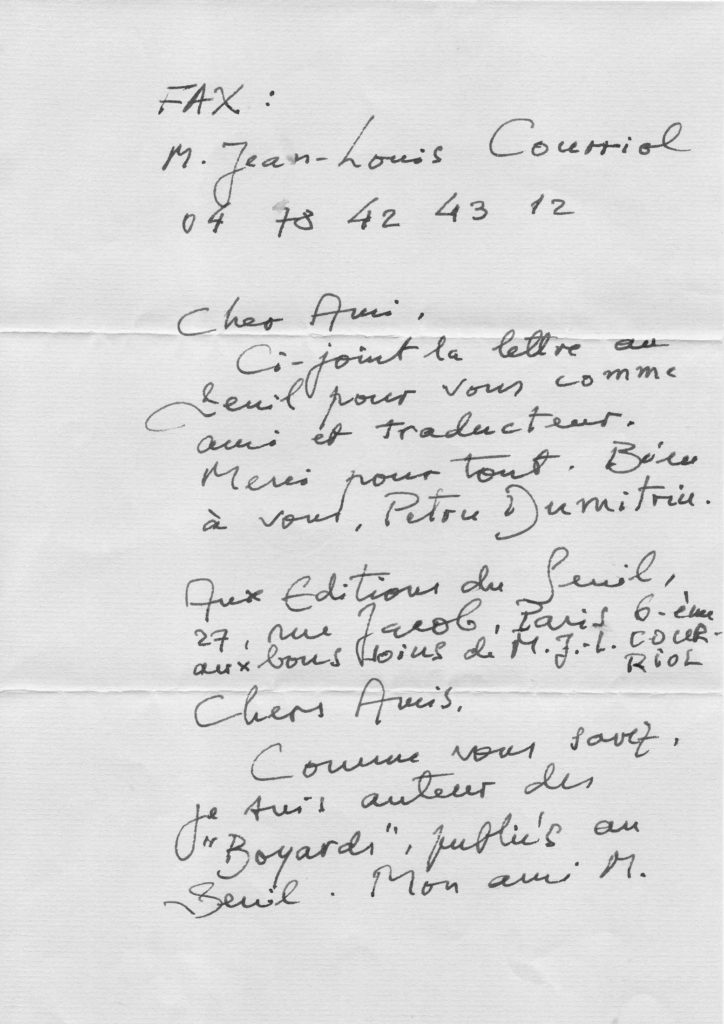 FAX :
M. Jean-Louis Courriol
04 78 42 43 12
Cher Ami,
Ci-joint la lettre au
Seuil pour vous comme
ami et traducteur.
Merci pour tout. Bien
à vous, Petru Dumitriu.
Aux Editions du Seuil,
27, rue Jacob, Paris 6-ème
aux bons soins de M. J.-L. COUR-
RIOL
Chers Amis,
Comme vous savez,
je suis auteur des
"Boyards", publiés au
Seuil. Mon ami M.